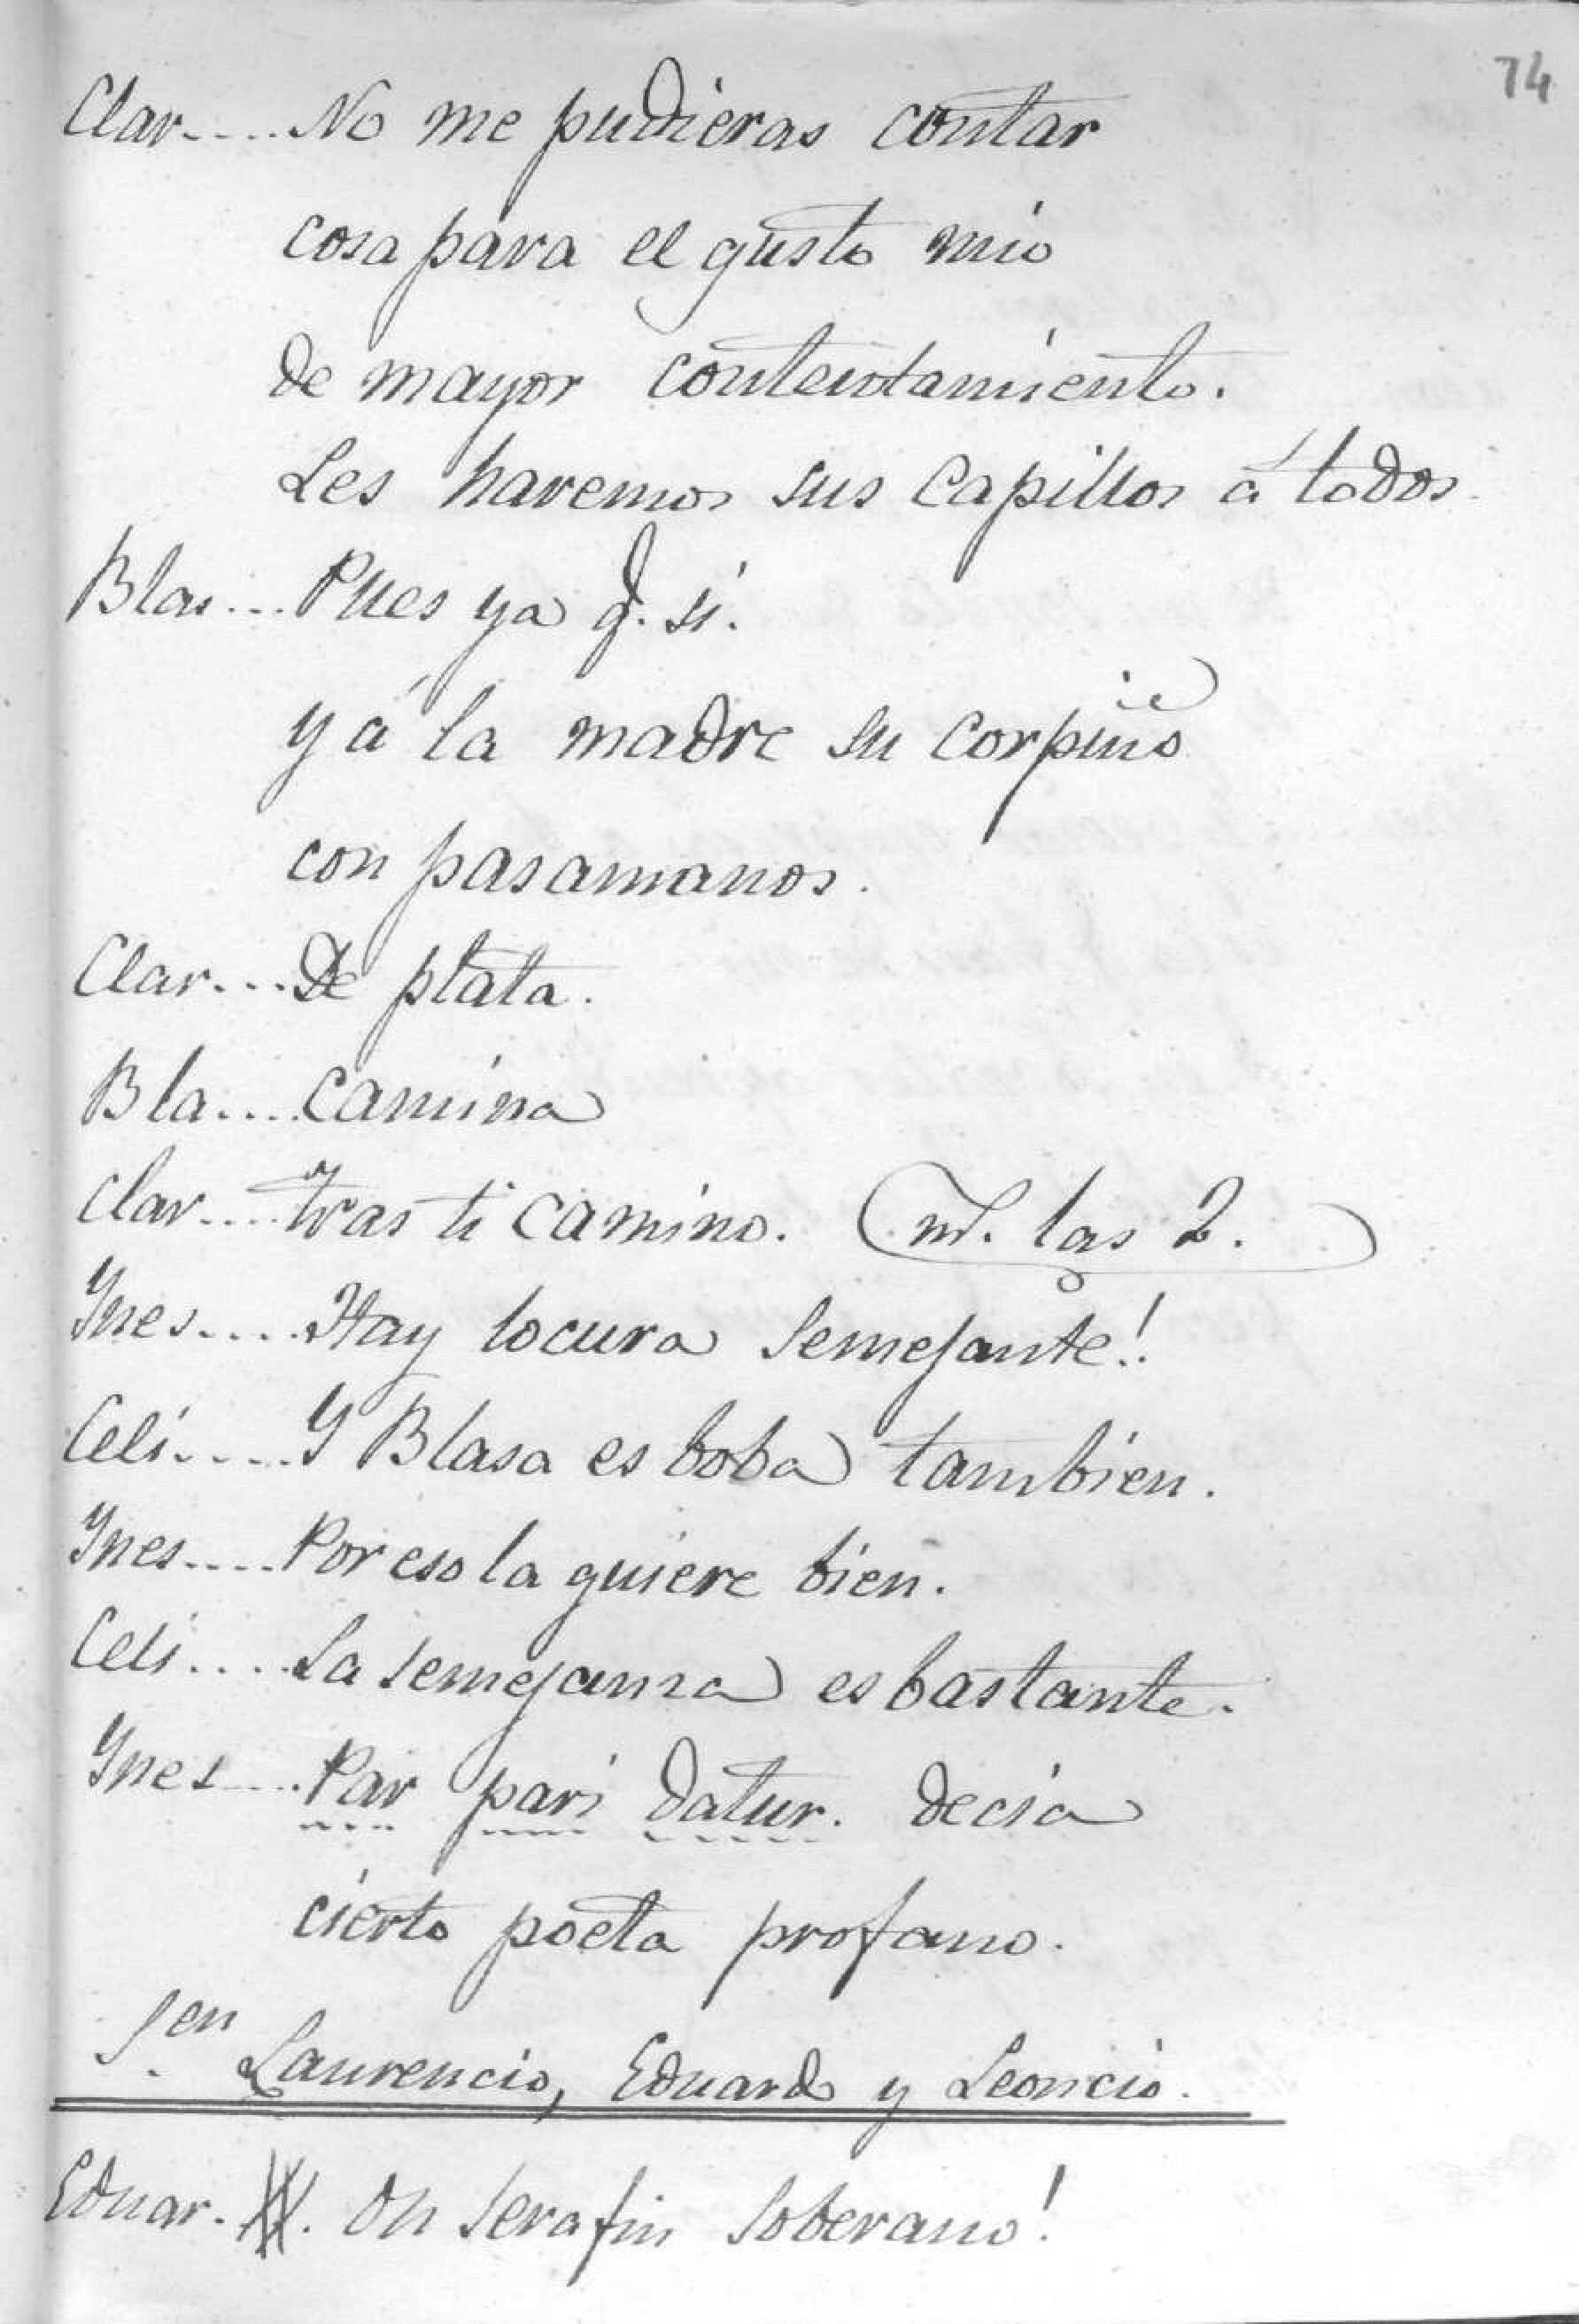 74
Clar.... No me pudieras contar
cosa para el gusto mio
de mayor contentamiento.
Les haremos sus capillos á todos.
Blas... Pues ya q. sí.
y á la madre su corpiño
con pasamanos.
Clar... De plata.
Bla.... Camina
Clar.... tras ti camino. (vt. las 2.)
Ynes.... Hay locura semejante!.
Celi..... Y Blasa es boba tambien.
Ynes.... Por eso la quiere bien.
Celi.... La semejanza es bastante.
Ynes.... Par pari datur. decia
cierto poeta profano.
Sen
Laurencio, Eduardo y Leoncio.
Eduar. . Oh serafin soberano!